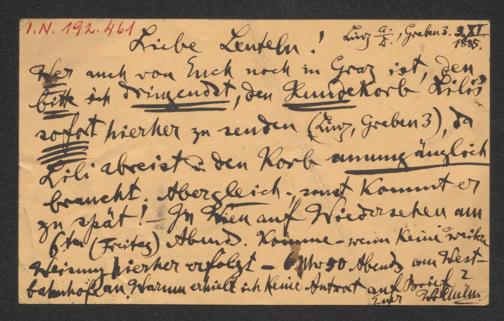 I.N. 192.461
Linz a/D., Graben 3. 3/XI 1895.
Liebe Leuteln!
Wer auch von Euch noch in Graz ist, den
bitte ich dringendst, den Hundekorb Lilis
sofort hierher zu senden (Linz, Graben 3), da
Lili abreist & den Korb unumgänglich
braucht. Aber gleich, sonst kommt er
zu spät! In Wien auf Wiedersehen am
6ten (Freitag) Abend. Komme – wenn keine weitere
Weisung hierher erfolgt – 6 Uhr 50 Abends am West-
bahnhofe an. Warum erhielt ich keine Antwort auf Brief?
Euer Wilhelm